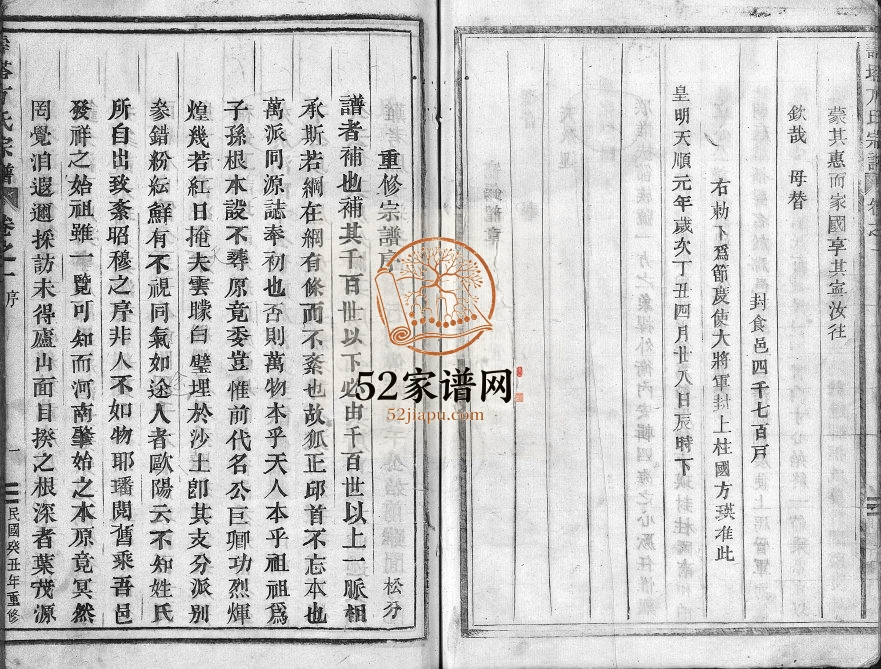 蒙其惠而家國享其寧汝往
欽哉 毋替
封食邑四千七百戸
右勅下爲節慶使大將軍封上柱國方瑛准此
皇明天順元年歲次丁丑四月廿八日辰時下
52家谱网
52jiapu.com
重修宗譜序
松分
譜者補也補其千百世以下必由千百世以上一脈相
承斯若綱在網有條而不紊也故狐正邱首不忘本也
萬派同源誌奉初也否則萬物本乎天人本乎祖祖爲
子孫根本設不尋原竟委豈惟前代名公巨卿功烈煇
煌幾若紅日掩夫雲矇白璧埋於沙土卽其支分派别
參錯粉紜鮮有不視同氣如途人者歐陽云不知姓氏
所自出致紊昭穆之序非人不如物耶璠閲舊乘吾邑
發祥之始祖雖一覽可知而河南肇始之本原竟冥然
罔覺洎遐邇採訪未得廬山面目揆之根深者葉茂源
塔方氏宗譜
卷之一
序
一
民國癸丑年重修